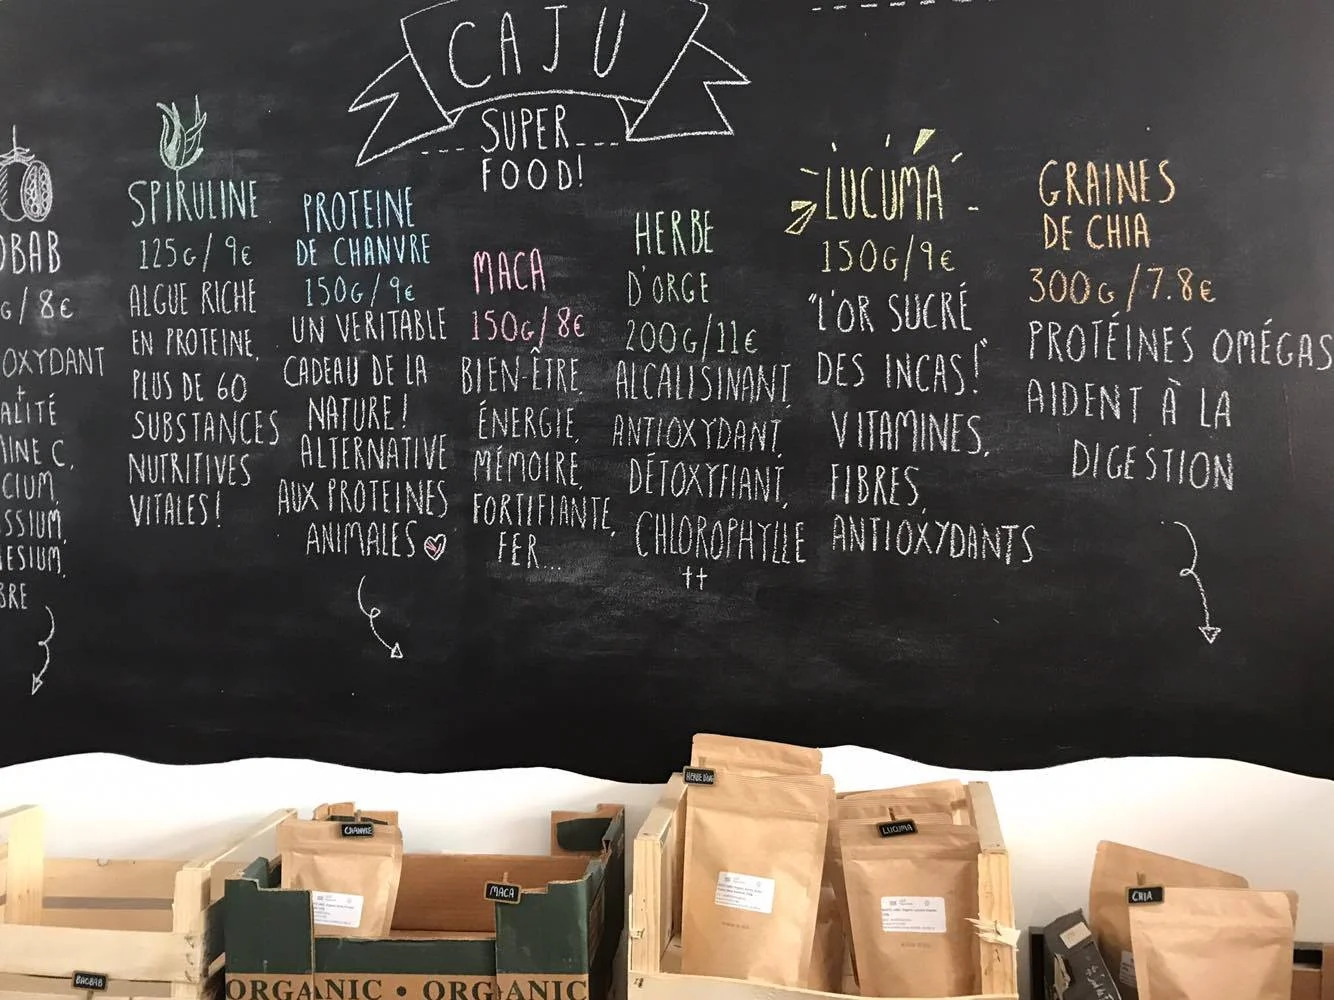 CAJU
SUPER
FOOD!
OBAB
G/8€
OXYDANT
+
ALITÉ
INE C,
CIUM,
SSIUM,
ESIUM,
BRE
SPIRULINE
125G/9€
ALGUE RICHE
EN PROTEINE,
PLUS DE 60
SUBSTANCES
NUTRITIVES
VITALES!
PROTEINE
DE CHANVRE
150G/9€
UN VERITABLE
CADEAU DE LA
NATURE!
ALTERNATIVE
AUX PROTEINES
ANIMALES
MACA
150G/8€
BIEN-ÊTRE,
ÉNERGIE,
MÉMOIRE,
FORTIFIANTE,
FER...
HERBE
D'ORGE
200G/11€
ALCALISINANT,
ANTIOXYDANT,
DÉTOXYFIANT,
CHLOROPHYLLE
++
LUCUMA
150G/9€
"L'OR SUCRÉ
DES INCAS!"
VITAMINES,
FIBRES,
ANTIOXYDANTS
GRAINES
DE CHIA
300G/7.8€
PROTÉINES OMÉGAS
AIDENT À LA
DIGESTION
BAOBAB
CHANVRE
MACA
HERBE D'ORGE
LUCUMA
CHIA
ORGANIC • ORGANIC